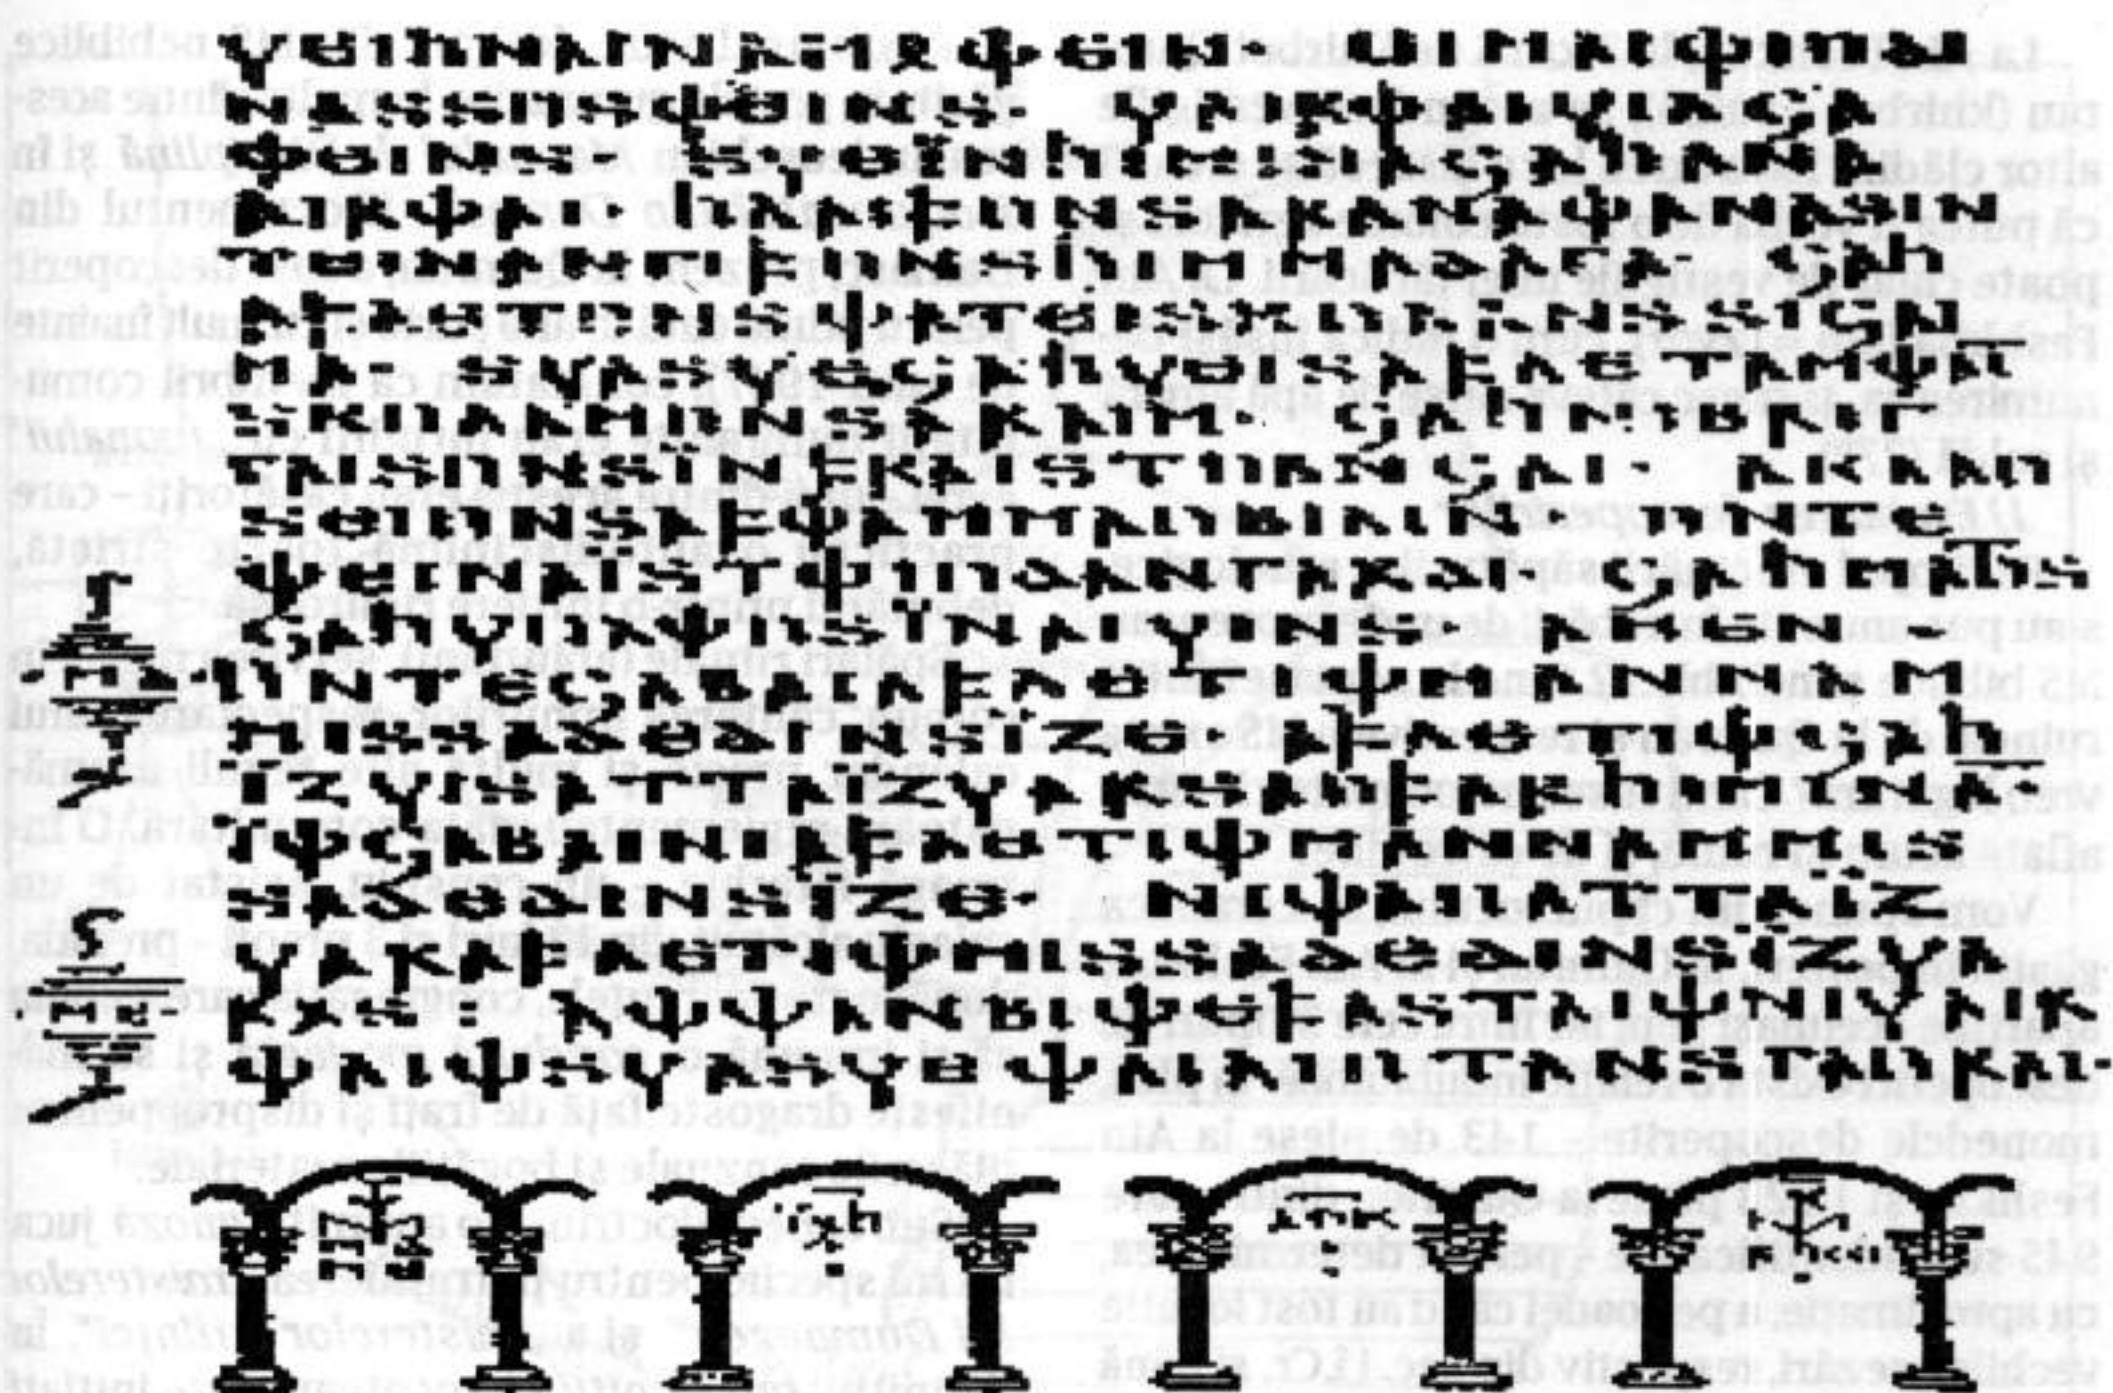 𐍅𐌴𐌹𐌷𐌽𐌰𐌹𐌽𐌰𐌼𐍉𐌸𐌴𐌹𐌽· 𐌵𐌹𐌼𐌰𐌹𐌸𐌹𐌿𐌳𐌹
𐌽𐌰𐍃𐍃𐌿𐍃𐌸𐌴𐌹𐌽𐍃· 𐍅𐌰𐌹𐍂𐌸𐌰𐌹𐍅𐌹𐌻𐌾𐌰
𐌸𐌴𐌹𐌽𐍃· 𐍃𐍅𐌴𐌹𐌽𐌷𐌹𐌼𐌹𐌽𐌰𐌾𐌰𐌷𐌰𐌽𐌰
𐌰𐌹𐍂𐌸𐌰𐌹· 𐌷𐌻𐌰𐌹𐍆𐌿𐌽𐍃𐌰𐍂𐌰𐌽𐌰𐌸𐌰𐌽𐌰𐍃𐌹𐌽
𐍄𐌴𐌹𐌽𐌰𐌽𐌲𐌹𐍆𐌿𐌽𐍃𐌷𐌹𐌼𐌼𐌰𐌳𐌰𐌲𐌰· 𐌾𐌰𐌷
𐌰𐍆𐌻𐌴𐍄𐌿𐌽𐍃𐌸𐌰𐍄𐌴𐌹𐍃𐌺𐌿𐌻𐌰𐌽𐍃𐍃𐌹𐌾𐌰𐌹
𐌼𐌰· 𐍃𐍅𐌰𐍃𐍅𐌴𐌾𐌰𐌷𐍅𐌴𐌹𐍃𐌰𐍆𐌻𐌴𐍄𐌰𐌼𐌸𐌰𐌹
𐍃𐌺𐌿𐌻𐌰𐌼𐌿𐌽𐍃𐌰𐍂𐌰𐌹𐌼· 𐌾𐌰𐌷𐌽𐌹𐌱𐍂𐌹𐌲
𐌲𐌰𐌹𐍃𐌿𐌽𐍃𐌹𐌽𐍆𐍂𐌰𐌹𐍃𐍄𐌿𐌱𐌽𐌾𐌰𐌹· 𐌰𐌺𐌻𐌰𐌿
𐍃𐌴𐌹𐌿𐌽𐍃𐌰𐍆𐌸𐌰𐌼𐌼𐌰𐌿𐌱𐌹𐌻𐌹𐌽· 𐌿𐌽𐍄𐌴
𐌸𐌴𐌹𐌽𐌰𐌹𐍃𐍄𐌸𐌹𐌿𐌳𐌰𐌽𐌲𐌰𐍂𐌳𐌹· 𐌾𐌰𐌷𐌼𐌰𐌷𐍄𐍃
𐌾𐌰𐌷𐍅𐌿𐌻𐌸𐌿𐍃𐌹𐌽𐌰𐌹𐍅𐌹𐌽𐍃· 𐌰𐌼𐌴𐌽·
𐌿𐌽𐍄𐌴𐌾𐌰𐌱𐌰𐌹𐌰𐍆𐌻𐌴𐍄𐌹𐌸𐌼𐌰𐌽𐌽𐌰𐌼
𐌼𐌹𐍃𐍃𐌰𐌳𐌴𐌳𐌹𐌽𐍃𐌹𐌶𐌴· 𐌰𐍆𐌻𐌴𐍄𐌹𐌸𐌾𐌰𐌷
𐌹𐌶𐍅𐌹𐍃𐌰𐍄𐍄𐌰𐌹𐌶𐍅𐌰𐍂𐍃𐌰𐌿𐍆𐌰𐍂𐌷𐌹𐌼𐌹𐌽𐌰·
𐌹𐌸𐌾𐌰𐌱𐌰𐌹𐌽𐌹𐌰𐍆𐌻𐌴𐍄𐌹𐌸𐌼𐌰𐌽𐌽𐌰𐌼𐌼𐌹𐍃
𐍃𐌰𐌳𐌴𐌳𐌹𐌽𐍃𐌹𐌶𐌴· 𐌽𐌹𐌸𐌰𐌿𐌰𐍄𐍄𐌰𐌹𐌶
𐍅𐌰𐍂𐌰𐍆𐌻𐌴𐍄𐌹𐌸𐌼𐌹𐍃𐍃𐌰𐌳𐌴𐌳𐌹𐌽𐍃𐌹𐌶𐍅𐌰
𐍂𐍉𐍃· 𐌰𐌸𐌸𐌰𐌽𐌱𐌹𐌸𐌴𐍆𐌰𐍃𐍄𐌰𐌹𐌸𐌽𐌹𐍅𐌰𐌹𐍂
𐌸𐌰𐌹𐌸𐍃𐍅𐌰𐍃𐍅𐌴𐌸𐌰𐌹𐌻𐌹𐌿𐍄𐌰𐌽𐍃𐍄𐌰𐌿𐍂𐌰𐌹·